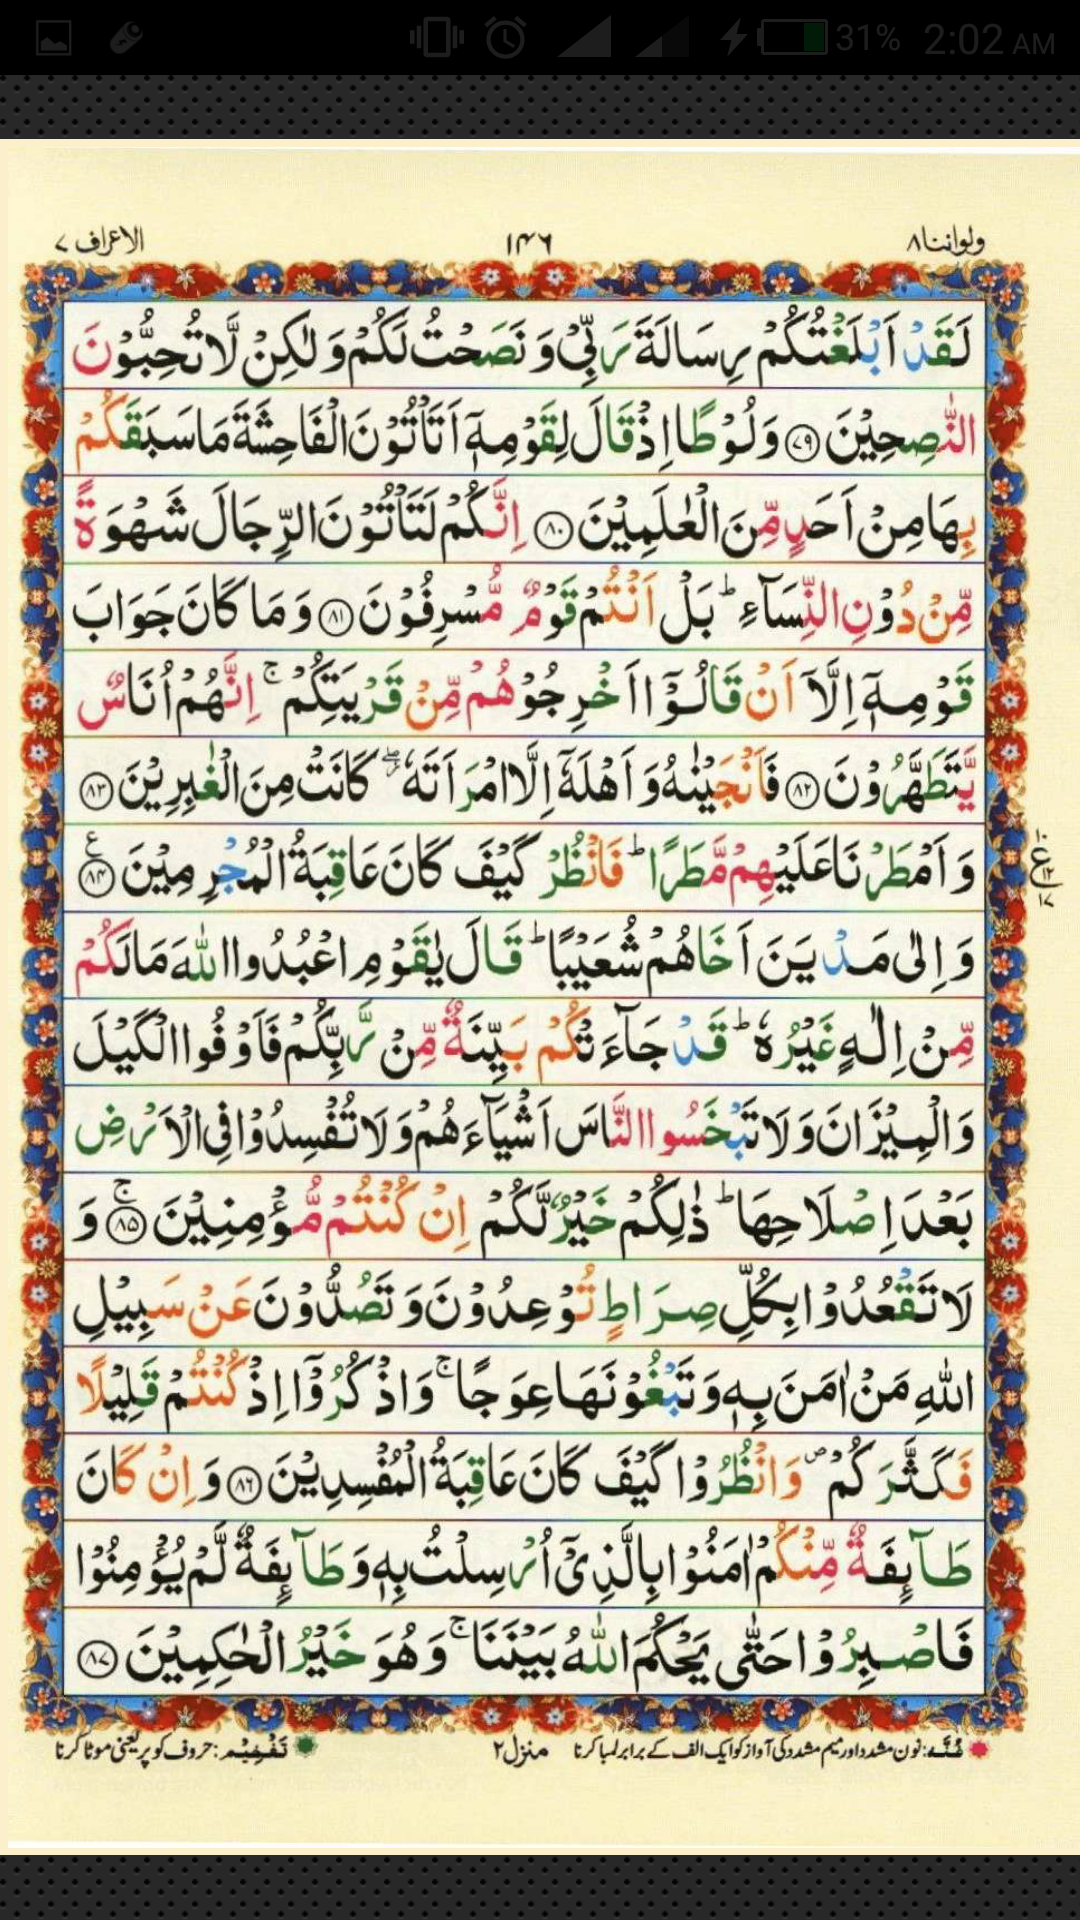 31% 2:02 AM
ولواننا ٨ ١٤٦ الاعراف ٧
لَقَدْ اَبْلَغْتُكُمْ رِسَالَةَ رَبِّیْ وَ نَصَحْتُ لَكُمْ وَ لٰكِنْ لَّا تُحِبُّوْنَ
النّٰصِحِیْنَ ﴿٧٩﴾ وَ لُوْطًا اِذْ قَالَ لِقَوْمِهٖۤ اَتَاْتُوْنَ الْفَاحِشَةَ مَا سَبَقَكُمْ
بِهَا مِنْ اَحَدٍ مِّنَ الْعٰلَمِیْنَ ﴿٨٠﴾ اِنَّكُمْ لَتَاْتُوْنَ الرِّجَالَ شَهْوَةً
مِّنْ دُوْنِ النِّسَآءِ ؕ بَلْ اَنْتُمْ قَوْمٌ مُّسْرِفُوْنَ ﴿٨١﴾ وَ مَا كَانَ جَوَابَ
قَوْمِهٖۤ اِلَّاۤ اَنْ قَالُوْۤا اَخْرِجُوْهُمْ مِّنْ قَرْیَتِكُمْ ۚ اِنَّهُمْ اُنَاسٌ
یَّتَطَهَّرُوْنَ ﴿٨٢﴾ فَاَنْجَیْنٰهُ وَ اَهْلَهٗۤ اِلَّا امْرَاَتَهٗ ۖؗ كَانَتْ مِنَ الْغٰبِرِیْنَ ﴿٨٣﴾
وَ اَمْطَرْنَا عَلَیْهِمْ مَّطَرًا ؕ فَانْظُرْ كَیْفَ كَانَ عَاقِبَةُ الْمُجْرِمِیْنَ ﴿٨٤﴾ ع
١٠ ع ١٢ ١٧
وَ اِلٰی مَدْیَنَ اَخَاهُمْ شُعَیْبًا ؕ قَالَ یٰقَوْمِ اعْبُدُوا اللّٰهَ مَا لَكُمْ
مِّنْ اِلٰهٍ غَیْرُهٗ ؕ قَدْ جَآءَتْكُمْ بَیِّنَةٌ مِّنْ رَّبِّكُمْ فَاَوْفُوا الْكَیْلَ
وَ الْمِیْزَانَ وَ لَا تَبْخَسُوا النَّاسَ اَشْیَآءَهُمْ وَ لَا تُفْسِدُوْا فِی الْاَرْضِ
بَعْدَ اِصْلَاحِهَا ؕ ذٰلِكُمْ خَیْرٌ لَّكُمْ اِنْ كُنْتُمْ مُّؤْمِنِیْنَ ﴿٨٥﴾ ۚ وَ
لَا تَقْعُدُوْا بِكُلِّ صِرَاطٍ تُوْعِدُوْنَ وَ تَصُدُّوْنَ عَنْ سَبِیْلِ
اللّٰهِ مَنْ اٰمَنَ بِهٖ وَ تَبْغُوْنَهَا عِوَجًا ۚ وَ اذْكُرُوْۤا اِذْ كُنْتُمْ قَلِیْلًا
فَكَثَّرَكُمْ ۪ وَ انْظُرُوْا كَیْفَ كَانَ عَاقِبَةُ الْمُفْسِدِیْنَ ﴿٨٦﴾ وَ اِنْ كَانَ
طَآىِٕفَةٌ مِّنْكُمْ اٰمَنُوْا بِالَّذِیْۤ اُرْسِلْتُ بِهٖ وَ طَآىِٕفَةٌ لَّمْ یُؤْمِنُوْا
فَاصْبِرُوْا حَتّٰی یَحْكُمَ اللّٰهُ بَیْنَنَا ۚ وَ هُوَ خَیْرُ الْحٰكِمِیْنَ ﴿٨٧﴾
غُنَّه: نون مشدد اور میم مشدد کی آواز کو ایک الف کے برابر لمبا کرنا منزل ۲ تَفْخِیْم: حروف کو پُر یعنی موٹا کرنا